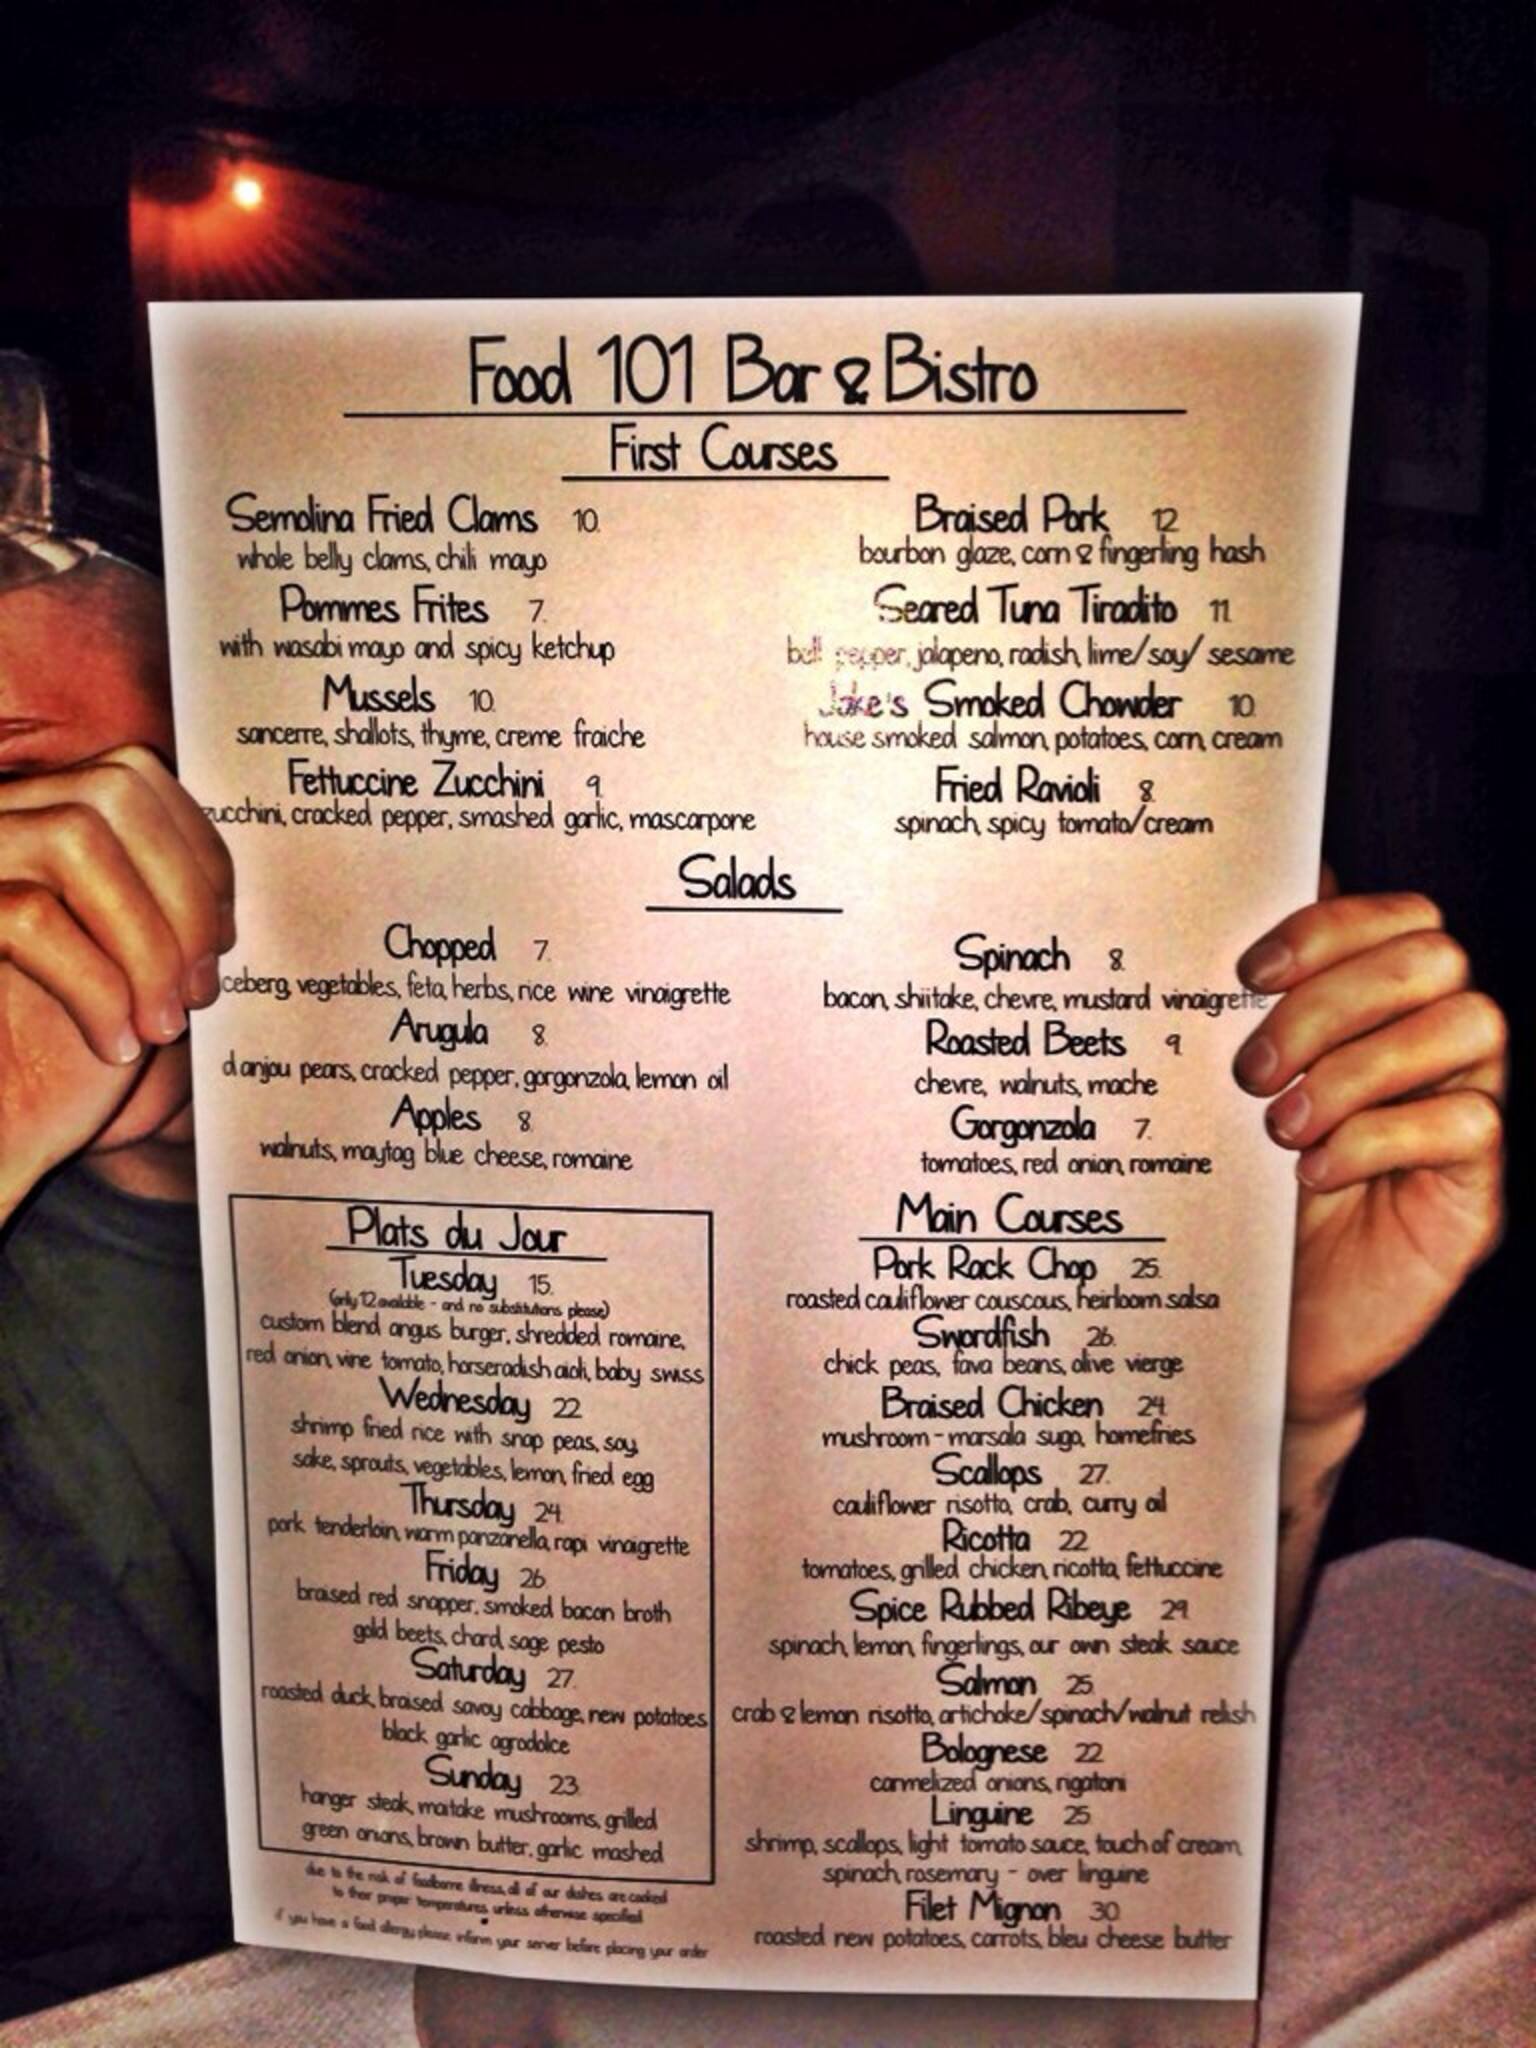 Food 101 Bar & Bistro
First Courses
Semolina Fried Clams 10.
whole belly clams, chili mayo
Pommes Frites 7.
with wasabi mayo and spicy ketchup
Mussels 10.
sancerre, shallots, thyme, creme fraiche
Fettuccine Zucchini 9.
zucchini, cracked pepper, smashed garlic, mascarpone
Braised Pork 12
bourbon glaze, corn & fingerling hash
Seared Tuna Tiradito 11.
bell pepper, jalapeno, radish, lime/soy/ sesame
Jake's Smoked Chowder 10.
house smoked salmon, potatoes, corn, cream
Fried Ravioli 8.
spinach, spicy tomato/cream
Salads
Chopped 7.
iceberg, vegetables, feta, herbs, rice wine vinaigrette
Arugula 8.
d'anjou pears, cracked pepper, gorgonzola, lemon oil
Apples 8.
walnuts, maytag blue cheese, romaine
Spinach 8.
bacon, shiitake, chevre, mustard vinaigrette
Roasted Beets 9.
chevre, walnuts, mache
Gorgonzola 7.
tomatoes, red onion, romaine
Plats du Jour
Tuesday 15.
(only 12 available - and no substitutions please)
custom blend angus burger, shredded romaine,
red onion, vine tomato, horseradish aioli, baby swiss
Wednesday 22
shrimp fried rice with snap peas, soy,
sake, sprouts, vegetables, lemon, fried egg
Thursday 24.
pork tenderloin, warm panzanella, rapi vinaigrette
Friday 26.
braised red snapper, smoked bacon broth
gold beets, chard, sage pesto
Saturday 27.
roasted duck, braised savoy cabbage, new potatoes
black garlic agrodolce
Sunday 23.
hanger steak, maitake mushrooms, grilled
green onions, brown butter, garlic mashed
due to the risk of foodborne illness, all of our dishes are cooked
to their proper temperatures unless otherwise specified
if you have a food allergy please inform your server before placing your order
Main Courses
Pork Rack Chop 25.
roasted cauliflower couscous, heirloom salsa
Swordfish 26.
chick peas, fava beans, olive vierge
Braised Chicken 24.
mushroom - marsala sugo, homefries
Scallops 27.
cauliflower risotto, crab, curry oil
Ricotta 22
tomatoes, grilled chicken, ricotta, fettuccine
Spice Rubbed Ribeye 29.
spinach, lemon, fingerlings, our own steak sauce
Salmon 25.
crab & lemon risotto, artichoke/spinach/walnut relish
Bolognese 22
carmelized onions, rigatoni
Linguine 25.
shrimp, scallops, light tomato sauce, touch of cream,
spinach, rosemary - over linguine
Filet Mignon 30.
roasted new potatoes, carrots, bleu cheese butter